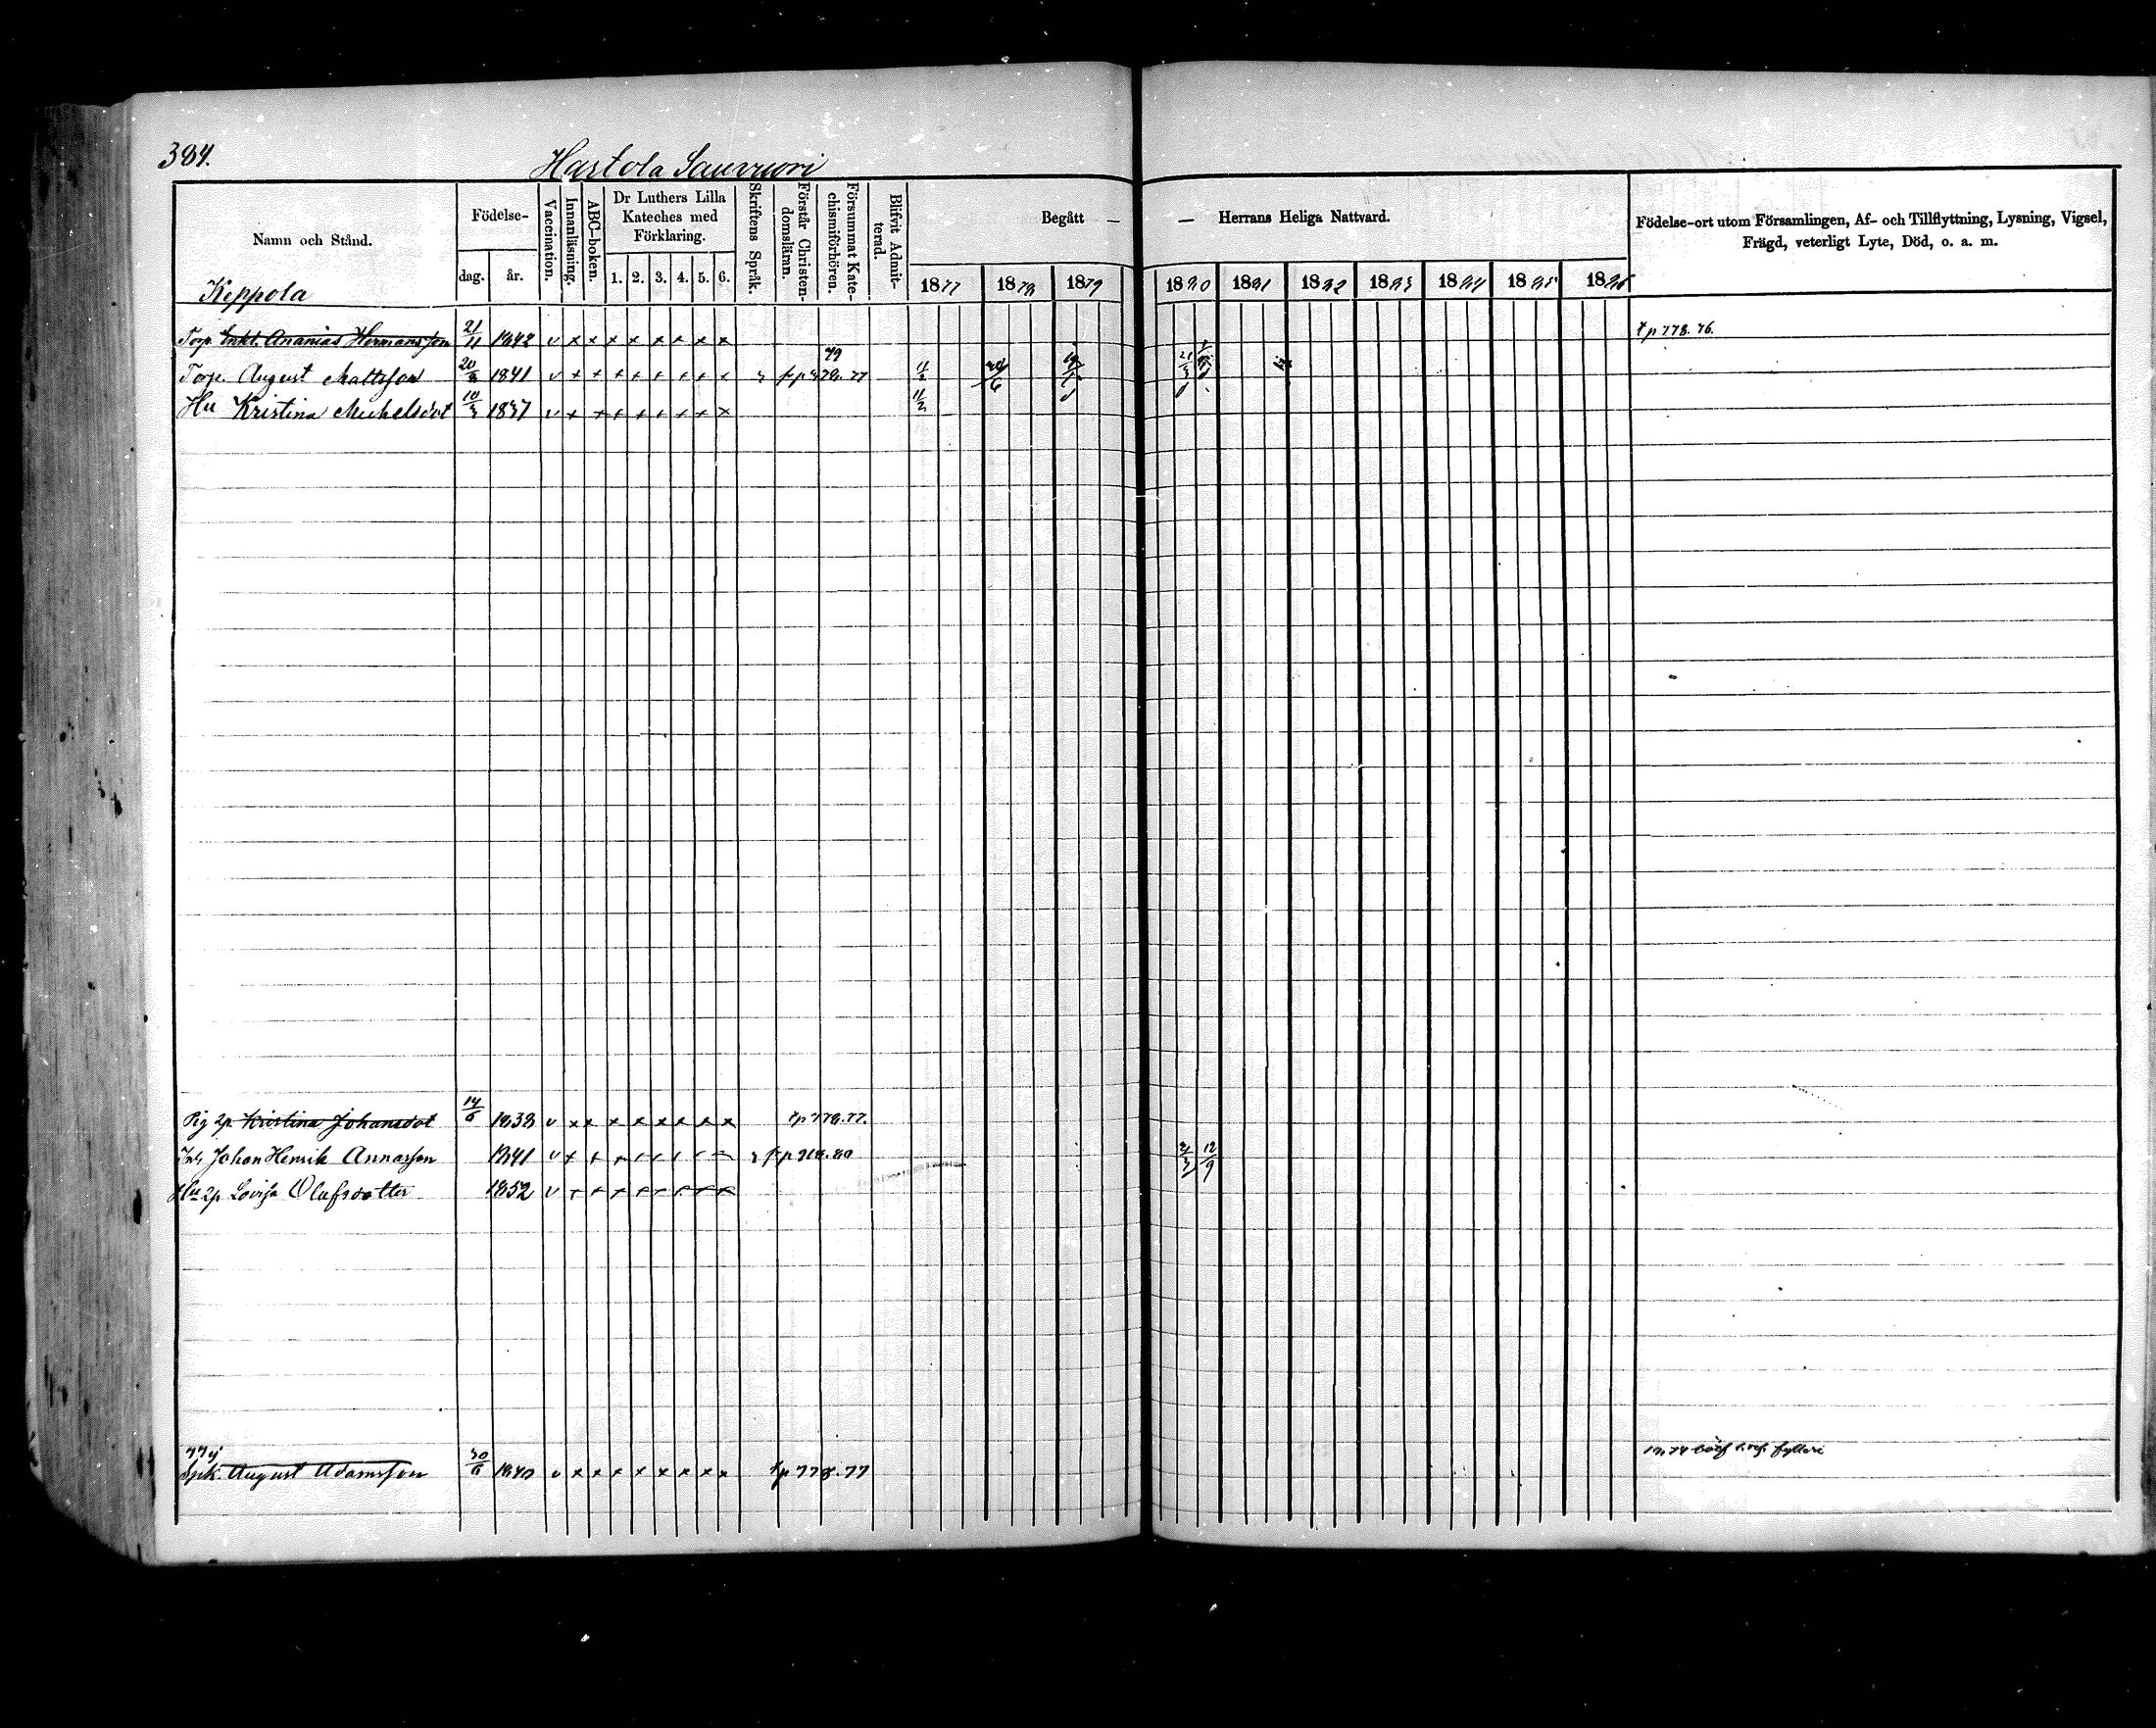 384.
Hartola Sauvuori
Namn och Stånd.
Födelse-
dag. år.
Vaccination.
Innanläsning.
ABC-boken.
Dr Luthers Lilla
Kateches med
Förklaring.
1. 2. 3. 4. 5. 6.
Skriftens Språk.
Förstår Christen-
domsläran.
Försummat Kate-
chismiförhören.
Blifvit Admit-
terad.
Begått — — Herrans Heliga Nattvard.
1877 1878 1879 1880 1881 1882 1883 1884 1885 1886
Födelse-ort utom Församlingen, Af- och Tillflyttning, Lysning, Vigsel,
Frägd, veterligt Lyte, Död, o. a. m.
Keppola
Torp. Inht. Ananias Hermansson 21/11 1842 v x x x x x x x x tp 778. 76.
Torp. August Mattsson 20/8 1841 v x x x x x x x x 11/2
Hu Kristina Michelsdot 10/3 1837 v x x x x x x x x 11/2
Pig 2p. Kristina Johansdot 14/6 1838 v x x x x x x x x tp 778. 77.
Johan Henrik Annasson 1841 v 12/9
Hu 2p Lovisa Olufsdotter 1852 v
August Adamsson 30/6 1840 v x x x x x x x x tp 778. 77